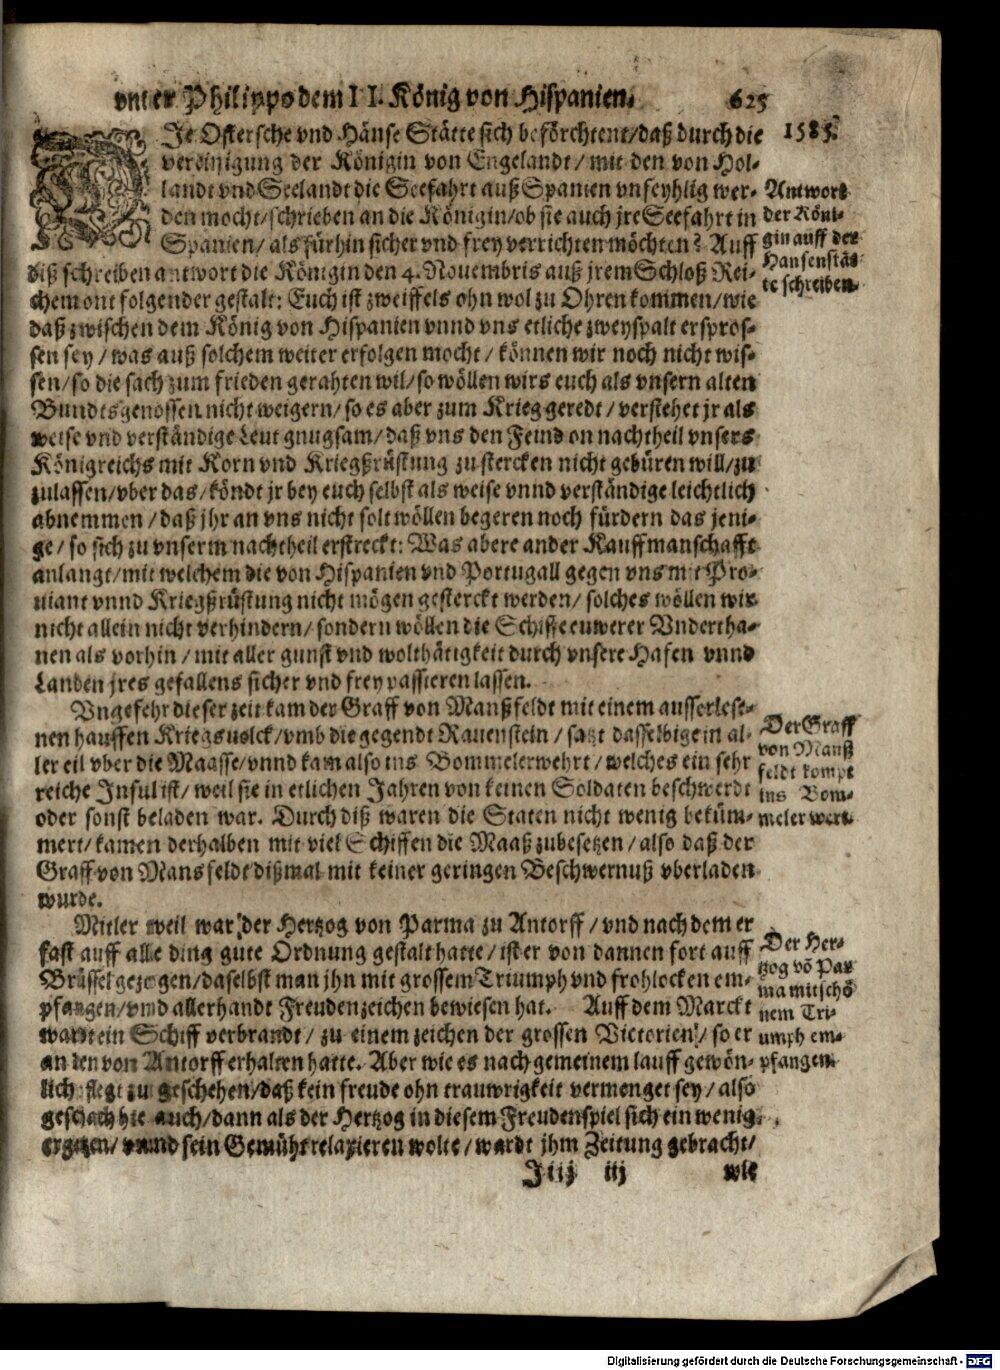 vnter Philippo dem II. König von Hispanien. 625
1585.
DIe Ostersche vnd Hänse Stätte sich beförchtent/daß durch die
vereinigung der Königin von Engelandt/mit den von Hol-
landt vnd Seelandt die Seefahrt auß Spanien vnfeyhlig wer-
den mocht/schrieben an die Königin/ob sie auch jre Seefahrt in
Spanien/als fürhin sicher vnd frey verrichten möchten? Auff
diß schreiben antwort die Königin den 4. Nouembris auß jrem Schloß Rei-
chemont folgender gestalt: Euch ist zweiffels ohn wol zu Ohren kommen/wie
daß zwischen dem König von Hispanien vnnd vns etliche zweyspalt erspros-
sen sey/was auß solchem weiter erfolgen mocht/können wir noch nicht wis-
sen/so die sach zum frieden gerahten wil/so wöllen wirs euch als vnsern alten
Bundtsgenossen nicht weigern/so es aber zum Krieg geredt/verstehet jr als
weise vnd verständige Leut gnugsam/daß vns den Feind on nachtheil vnsers
Königreichs mit Korn vnd Kriegßrüstung zu stercken nicht gebüren will/zu
zulassen/vber das/köndt jr bey euch selbst als weise vnnd verständige leichtlich
abnemmen/daß jhr an vns nicht solt wöllen begeren noch fürdern das jeni-
ge/so sich zu vnserm nachtheil erstreckt: Was aber e ander Kauffmanschafft
anlangt/mit welchem die von Hispanien vnd Portugall gegen vns mit Pro-
uiant vnnd Kriegßrüstung nicht mögen gesterckt werden/solches wöllen wir
nicht allein nicht verhindern/sondern wöllen die Schiffe euwerer Vndertha-
nen als vorhin/mit aller gunst vnd wolthätigkeit durch vnsere Hafen vnnd
Landen jres gefallens sicher vnd frey passieren lassen.
Vngefehr dieser zeit kam der Graff von Manßfeldt mit einem ausserlese-
nen hauffen Kriegsuolck/vmb die gegendt Rauenstein/satzt dasselbige in al-
ler eil vber die Maasse/vnnd kam also ins Bommelerwehrt/welches ein sehr
reiche Insul ist/weil sie in etlichen Jahren von keinen Soldaten beschwerdt
oder sonst beladen war. Durch diß waren die Staten nicht wenig beküm-
mert/kamen derhalben mit viel Schiffen die Maaß zubesetzen/also daß der
Graff von Mansfeldt dißmal mit keiner geringen Beschwernuß vberladen
wurde.
Mitler weil war der Hertzog von Parma zu Antorff/vnd nach dem er
fast auff alle ding gute Ordnung gestalt hatte/ist er von dannen fort auff
Brüssel gezogen/daselbst man jhn mit grossem Triumph vnd frohlocken em-
pfangen/vnd allerhandt Freudenzeichen bewiesen hat. Auff dem Marckt
wardt ein Schiff verbrandt/zu einem zeichen der grossen Victorien/so er
an den von Antorff erhalten hatte. Aber wie es nach gemeinem lauff gewön-
lich pflegt zu geschehen/daß kein freude ohn trauwrigkeit vermenget sey/also
geschach hie auch/dann als der Hertzog in diesem Freudenspiel sich ein wenig
ergetzen/vnnd sein Gemüht relaxieren wolte/wardt jhm Zeitung gebracht/
Jiij iij wie
Antwort
der Köni-
gin auff der
Hansenstät-
te schreiben.
Der Graff
von Manß
feldt kompt
ins Bom-
meler wert.
Der Her-
tzog võ Par
ma mit schö
nem Tri-
umph em-
pfangen.
Digitalisierung gefördert durch die Deutsche Forschungsgemeinschaft - DFG